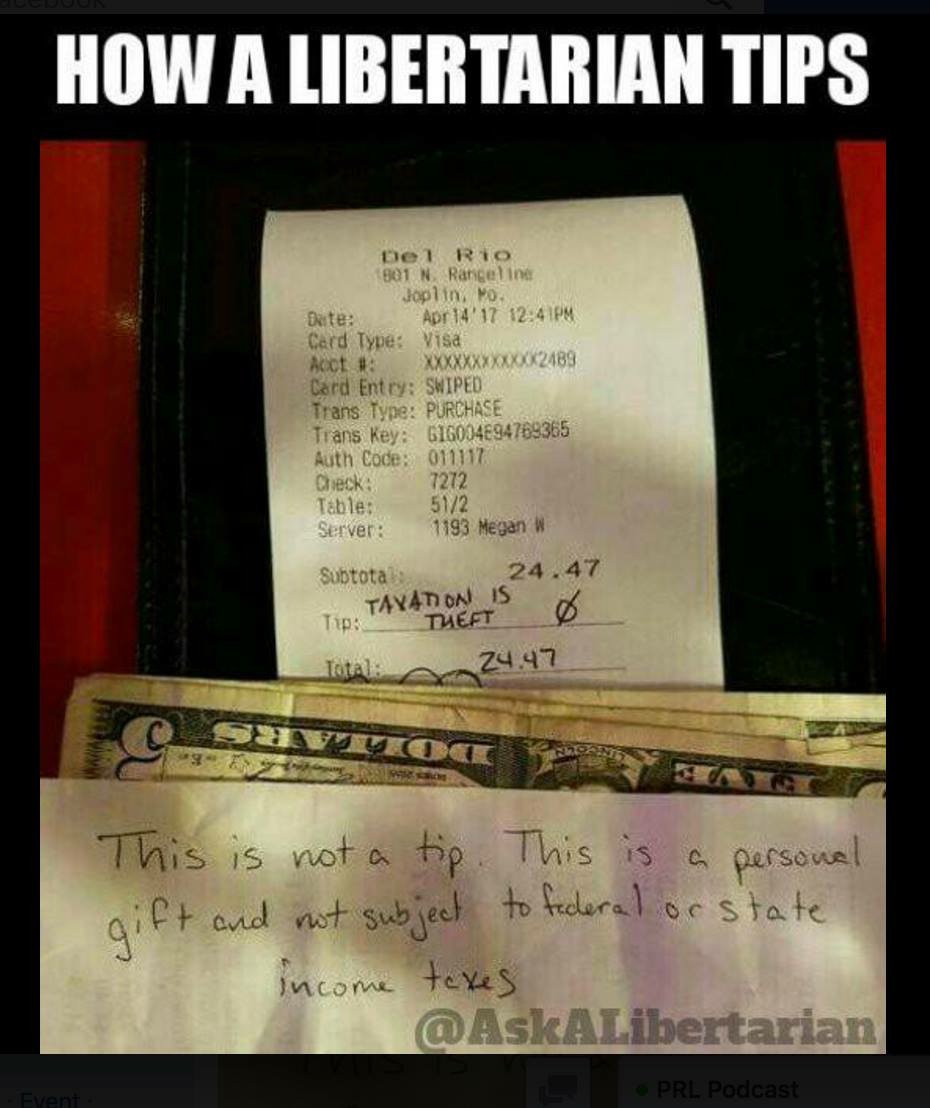 acebook
HOW A LIBERTARIAN TIPS
Del Rio
1801 N. Rangeline
Joplin, Mo.
Date: Apr14'17 12:41PM
Card Type: Visa
Acct #: XXXXXXXXXXXX2489
Card Entry: SWIPED
Trans Type: PURCHASE
Trans Key: GIG004E94769365
Auth Code: 011117
Check: 7272
Table: 51/2
Server: 1193 Megan W
Subtotal: 24.47
TAXATION IS
Tip: THEFT Ø
Total: 24.47
5 DOLLARS
LINCOLN
FIVE
This is not a tip. This is a personal
gift and not subject to federal or state
income taxes
@AskALibertarian
· Event ·
PRL Podcast